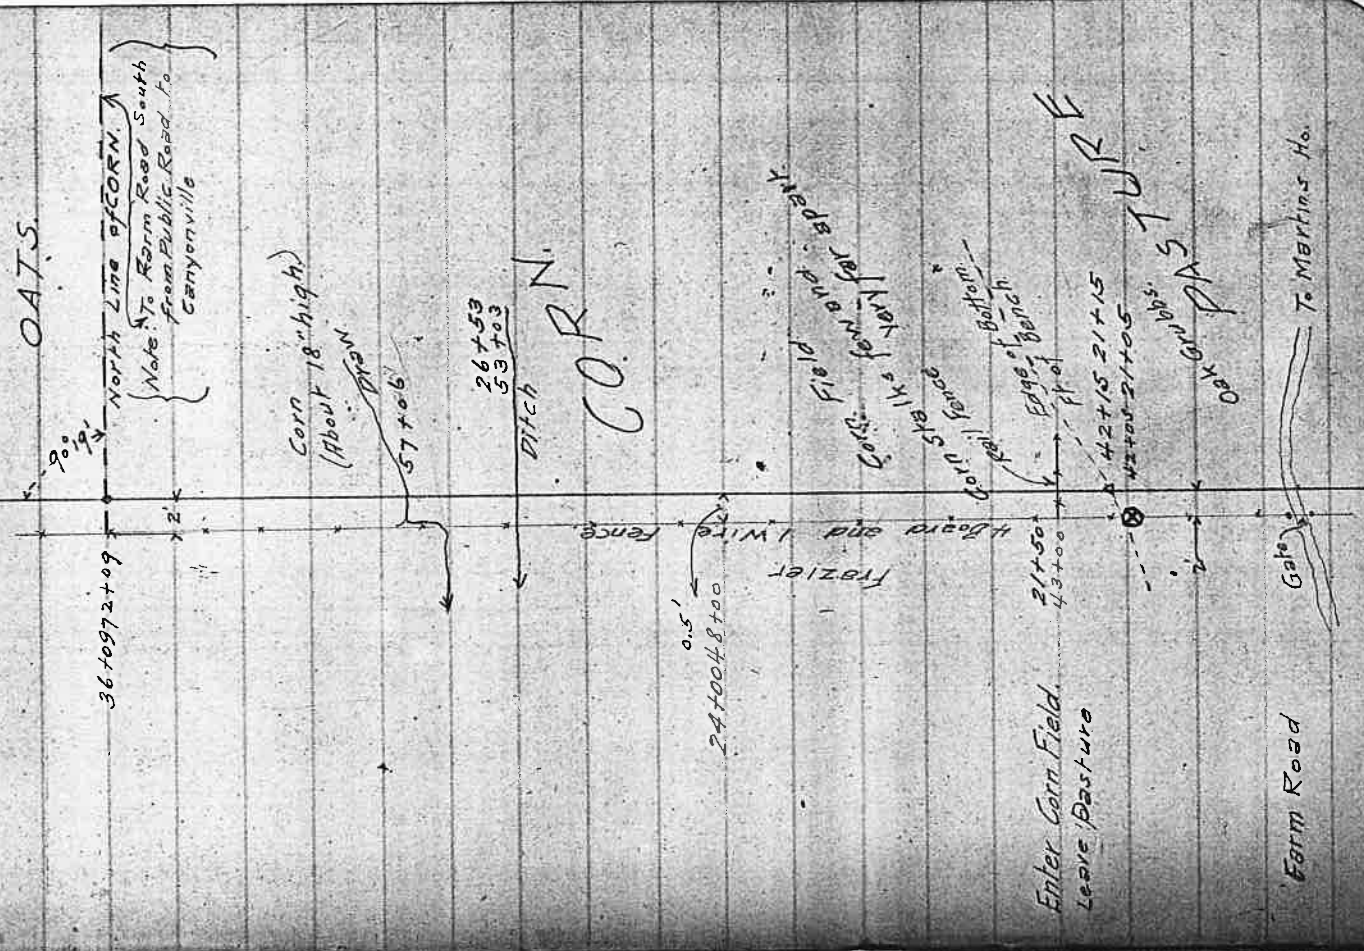 OATS.
90°19'
North Line of CORN.
(Note: To Farm Road South
from Public Road to
Canyonville
36+09 72+09
2'
Corn
(About 18" high.)
Draw
57+06
26+53
53+03
Ditch
CORN.
0.5'
24+00 48+00
4 Board and 1 Wire Fence.
Frazier
Field
Corn. Few and
Corn stalks very far apart.
Rail Fence
Edge of Bottom
Ft. of Bench
21+50
43+00
Enter Corn Field.
Leave Pasture
42+15 21+15
42+05 21+05
PASTURE
Oak Grubbs.
2'
Gate
To Martins Ho.
Farm Road